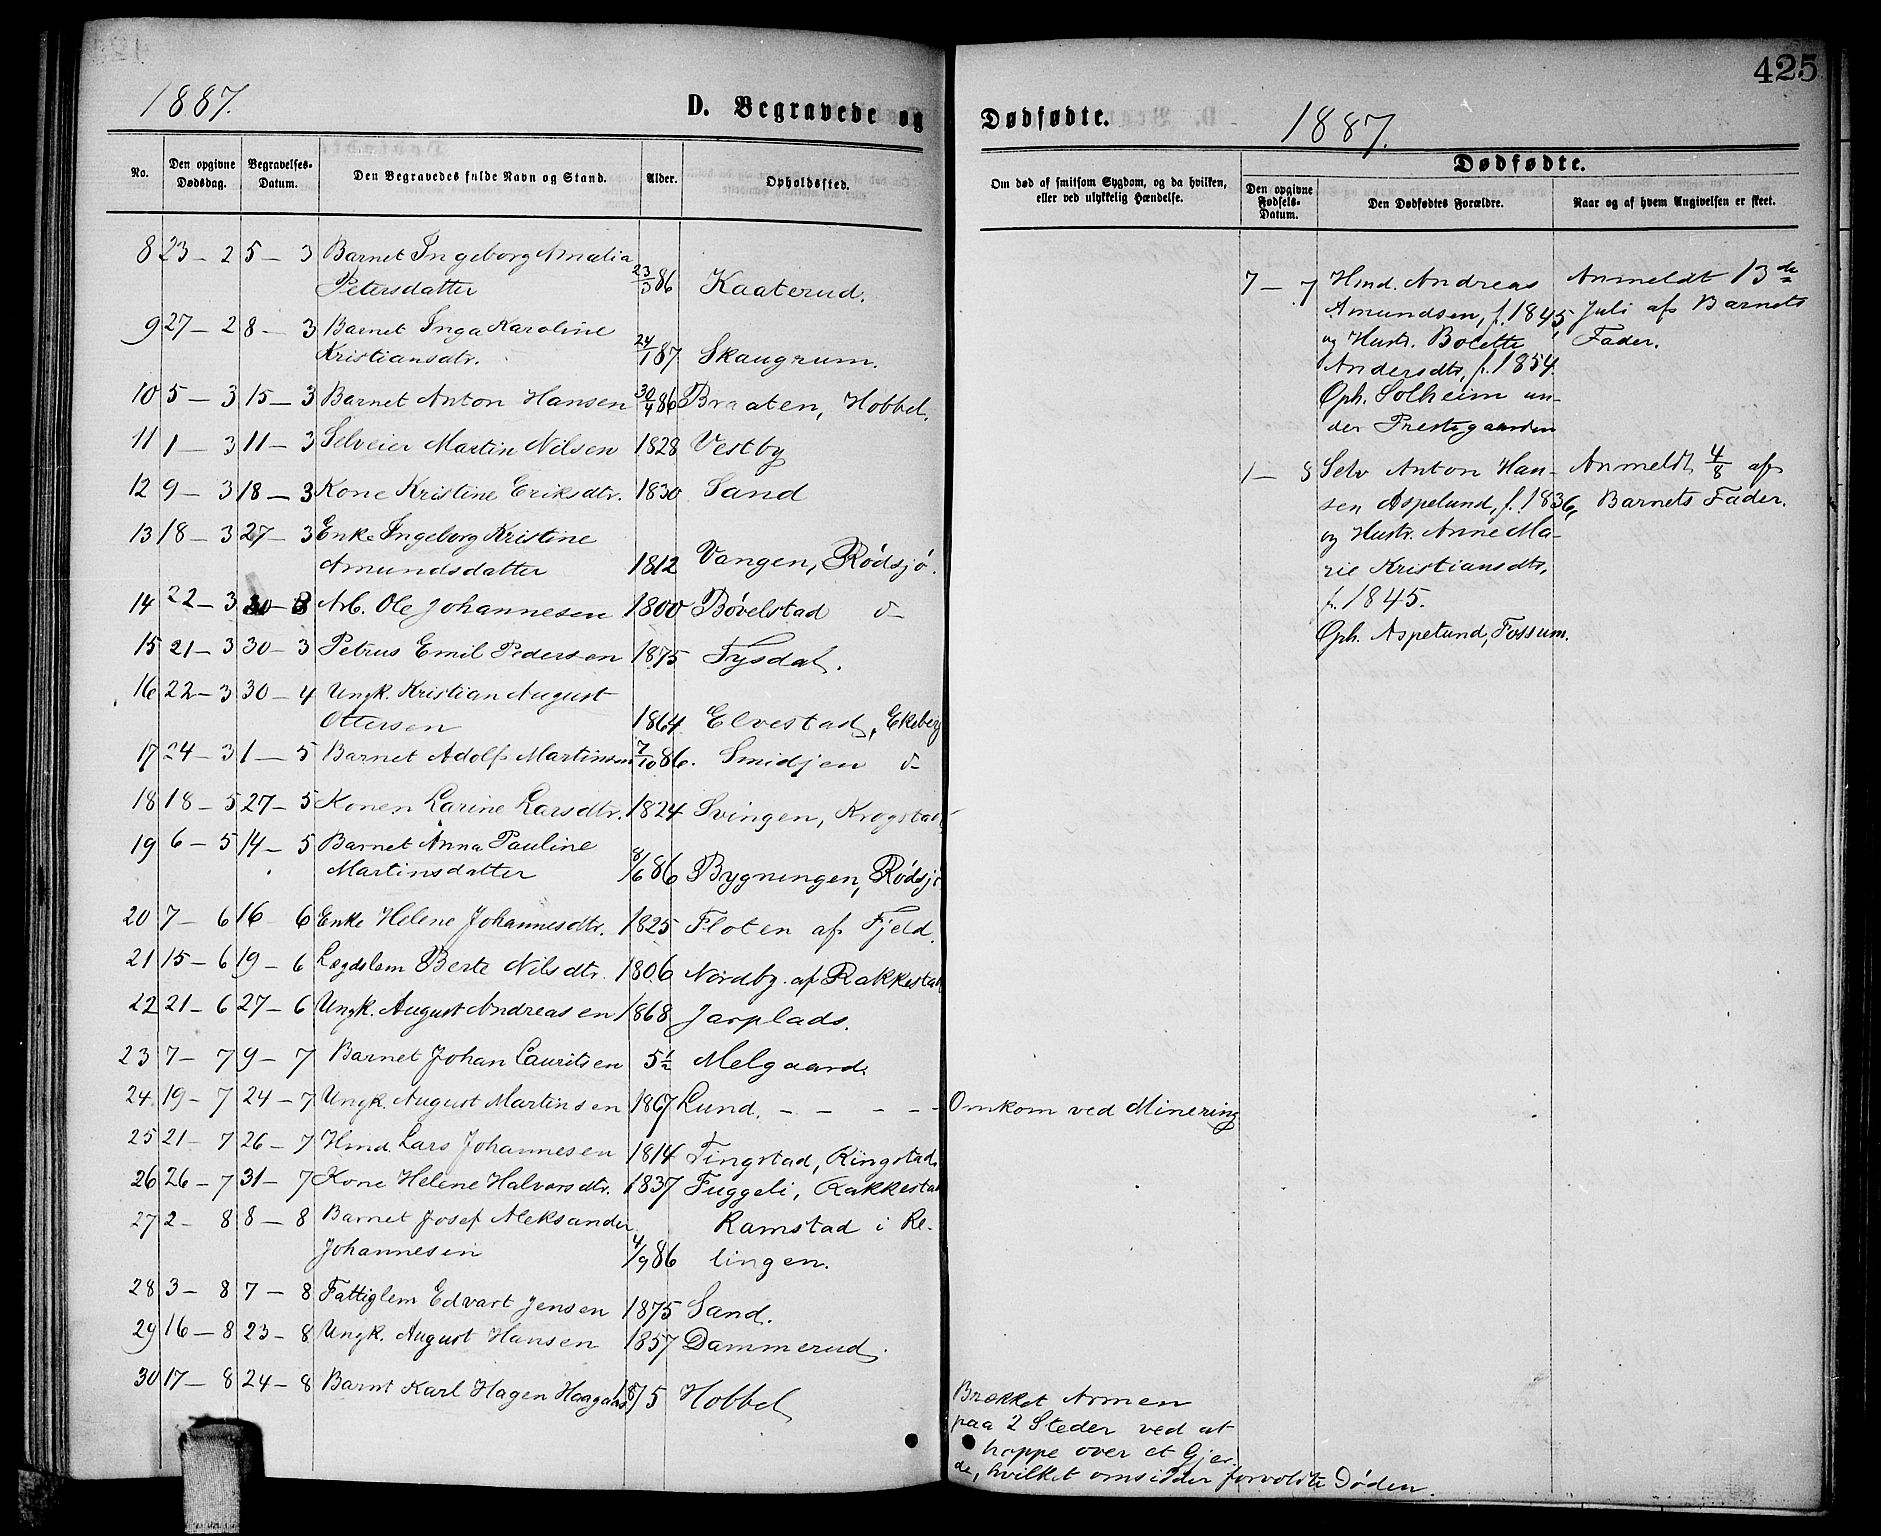 425
1887.
D. Begravede og
No.
Den opgivne Dødsdag.
Begravelses-Datum.
Den Begravedes fulde Navn og Stand.
Alder.
Opholdssted.
8 23 – 2 5 – 3 Barnet Ingeborg Amalia
Petersdatter 23/3 86 Kaaterud.
9 27 – 2 8 – 3 Barnet Inga Karoline
Kristiansdtr. 24/1 87 Skaugrum.
10 5 – 3 15 – 3 Barnet Anton Hansen 30/4 86 Braaten, Hobbel.
11 1 – 3 11 – 3 Selveier Martin Nilsen 1828 Vestby
12 9 – 3 18 – 3 Kone Kristine Eriksdtr. 1830 Sand
13 18 – 3 27 – 3 Enke Ingeborg Kristine
Amundsdatter 1812 Vangen, Rødsjø.
14 22 – 3 30 – 3 Arb. Ole Johannesen 1800 Bøvelstad d–
15 21 – 3 30 – 3 Petrus Emil Pedersen 1875 Tysdal.
16 22 – 3 30 – 4 Ungk. Kristian August
Ottersen 1864 Elvestad, Ekeberg
17 24 – 3 1 – 5 Barnet Adolf Martinsen 7/10 86. Smidjen d–
18 18 – 5 27 – 5 Konen Larine Larsdtr. 1824 Svingen, Krogstad
19 6 – 5 14 – 5 Barnet Anna Pauline
Martinsdatter 8/6 86 Bygningen, Rødsjø
20 7 – 6 16 – 6 Enke Helene Johannesdtr. 1825 Floten af Fjeld.
21 15 – 6 19 – 6 Lægdslem Berte Nilsdtr. 1806 Nordby. af Rakkestad
22 21 – 6 27 – 6 Ungk. August Andreasen 1868 Jarplads.
23 7 – 7 9 – 7 Barnet Johan Lauritsen 5½ Melgaard.
24 19 – 7 24 – 7 Ungk. August Martinsen 1867 Lund. – – – –
25 21 – 7 26 – 7 Hmd. Lars Johannesen 1814 Tingstad, Ringstad.
26 26 – 7 31 – 7 Kone Helene Halvorsdtr. 1837 Fuggeli, Rakkestad
27 2 – 8 8 – 8 Barnet Josef Aleksander Ramstad i Re-
Johannesen 4/9 86 lingen.
28 3 – 8 7 – 8 Fattiglem Edvart Jensen 1875 Sand.
29 16 – 8 23 – 8 Ungk. August Hansen 1857 Dammerud.
30 17 – 8 24 – 8 Barnt Karl Hagen Haagaas 18/ 5 Hobbel
Dødfødte.
1887.
Om død af smitsom Sygdom, og da hvilken,
eller ved ulykkelig Hændelse.
Dødfødte.
Den opgivne Fødsels-Datum.
Den Dødfødtes Forældre.
Naar og af hvem Angivelsen er skeet.
7 – 7 Hmd. Andreas Anmeldt 13de
Amundsen, f. 1845, Juli af Barnets
og Hustr. Bolette Fader.
Andersdtr, f. 1854.
Oph. Solheim un-
der Prestegaarden
1 – 8 Selv Anton Han- Anmeldt 4/8 af
sen Aspelund, f. 1836, Barnets Fader.
og Hustr. Anne Ma-
rie Kristiansdtr,
f. 1845.
Oph. Aspelund, Fossum.
Omkom ved Minering
Brækket Armen
paa 2 Steder ved at
hoppe over et Gjer-
de, hvilket omsidder forvoldte Døden.